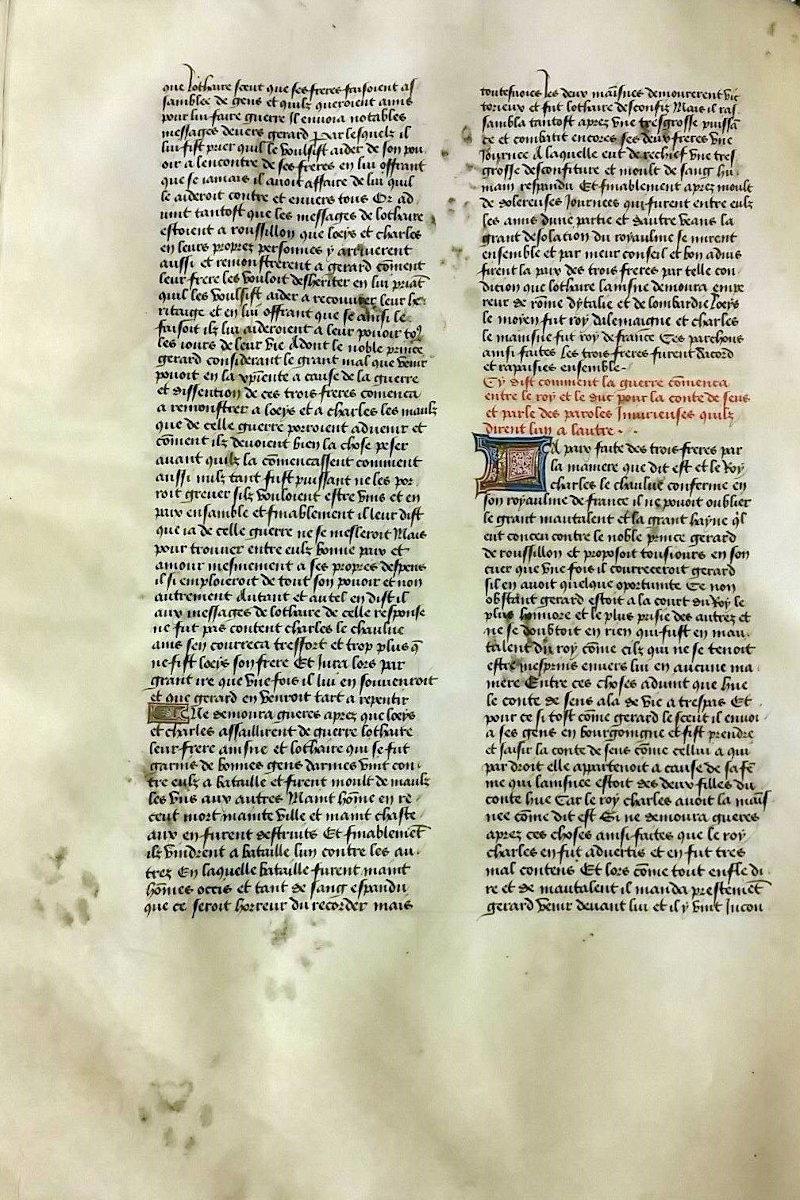 que lothaire sceut que ses freres faisoient as
samblee de gens et quilz queroient amis
pour lui faire guerre Il enuoia notables
messages deuers gerard Par lesquelz il
lui fist prier quil le voulsist aider de son pou
oir a lencontre de ses freres en lui offrant
que se iamais il auoit affaire de lui quil
le aideroit contre et enuers tous Or ad
uint tantost que les messages de lothaire
estoient a roussillon que loeys et charles
en leurs propres personnes y arriuerent
aussi et remonstrerent a gerard cōment
leur frere les vouloit desheriter en lui priāt
quil les voulsist aider a recouurer leur he
ritaige et en lui offrant que se ainsi le
faisoit ilz lui aideroient a leur pouoir to9
les iours de leur vie Adont le noble prince
gerard considerant le grant mal que venir
pouoit en la xp̄iente a cause de la guerre
et dissention de ces trois freres comenca
a remonstrer a loeys et a charles les maulz
que de celle guerre porroient aduenir et
cōment ilz deuoient bien la chose peser
auant quilz la cōmencassent comment
aussi nulz tant fust puissant ne les por
roit greuer silz vouloient estre vnis et en
paix ensamble et finablement il leur dist
que ia de celle guerre ne se mesleroit Mais
pour trouuer entre eulz bonne paix et
amour mesmement a ses propres despens
il si emploieroit de tout son pouoir et non
autrement Autant et autel en dist il
aux messages de lothaire de celle response
ne fut pas content charles le chaulue
ains sen courreca tresfort et trop plus q̄
ne fist loeys son frere Et iura lors par
grant ire que vne fois il lui en souuenroit
et que gerard en venroit tart a repentir
Ne demoura gueres aprez que loeys
et charles assaillirent de guerre lothaire
leur frere aisne et lothaire qui se fut
garnis de bonnes gens darmes vint con
tre eulz a bataille et firent moult de maulz
les vns aux autres Maint hōme en re
ceut mort mainte ville et maint chaste
aux en furent destruits Et finablemēt
ilz vindrent a bataille lun contre les au
trez En laquelle bataille furent maint
hōmes occis et tant de sang espandu
que ce seroit horreur du recorder mais
toutesuoies les deux maisnes demourerent vic
torieux et fut lothaire desconfiz Mais il ras
sambla tantost aprez vne tresgrosse puissā
ce et combatit encores ses deux freres vne
Journee A laquelle eut de rechief vne tres
grosse desconfiture et moult de sang hu
main respandu Et finablement aprez moult
de dolereuses Journees qui furent entre eulz
les amis dune partie et dautre veans la
grant desolation du royaulme se mirent
ensemble et par meur conseil et bon aduis
firent la paix des trois freres par telle con
dition que lothaire laisne demoura empe
reur de rōme dytalie et de lombardie Loeys
le moyen fut roy dalemaigne et charles
le maisne fut roy de france Ces parchons
ainsi faites Les trois freres furent dacord
et rapaisies ensemble
Cy dist comment la guerre cōmenca
entre le roy et le duc pour la conte de sens
et parle des paroles Iniurieuses quilz
dirent lun a lautre
La paix faite des trois freres par
la maniere que dit est et le Roy
charles le chaulue conferme en
son royaulme de france il ne pouoit oublier
le grant mautalent et la grant hayne q̄l
eut conceu contre le noble prince gerard
de roussillon et proposoit tousiours en son
cuer que vne fois il courreceroit gerard
sil en auoit quelque oportunite Ce non
obstant gerard estoit a la court du Roy le
plus honnore et le plus prisie des autrez et
ne se doubtoit en rien qui fust en mau
talent du roy cōme cilz qui ne se tenoit
estre mesprins enuers lui en aucune ma
niere Entre ces choses aduint que hue
le conte de sens ala de vie a trespas Et
pour ce si tost cōme gerard le sceut il enuoi
a ses gens en bourgoingne et fist prendre
et saisir la conte de sens cōme cellui a qui
par droit elle appartenoit a cause de sa fē
me qui laisnee estoit des deux filles du
conte hue Car le roy charles auoit la mais
nee cōme dit est Si ne demoura gueres
aprez ces choses ainsi faites que le roy
charles en fut aduertis et en fut tres
mal contens Et lors cōme tout enfle di
re et de mautalent il manda prestemēt
gerard venir deuant lui et il y vint Incon